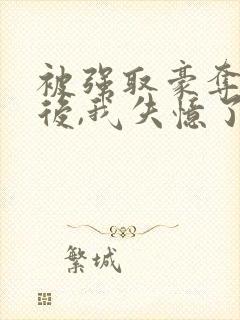 被强取豪夺
後,我失憶了
繁城